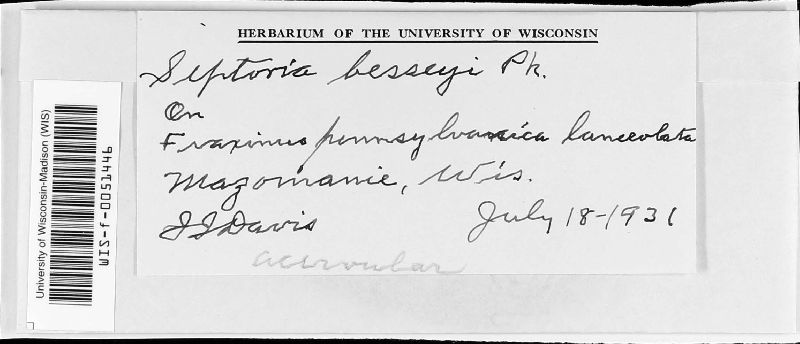 HERBARIUM OF THE UNIVERSITY OF WISCONSIN
Septoria besseyi Pk.
On
Fraxinus pennsylvanica lanceolata
Mazomanie, Wis.
JJDavis July 18-1931
acervular
University of Wisconsin-Madison (WIS)
WIS-f-0051446